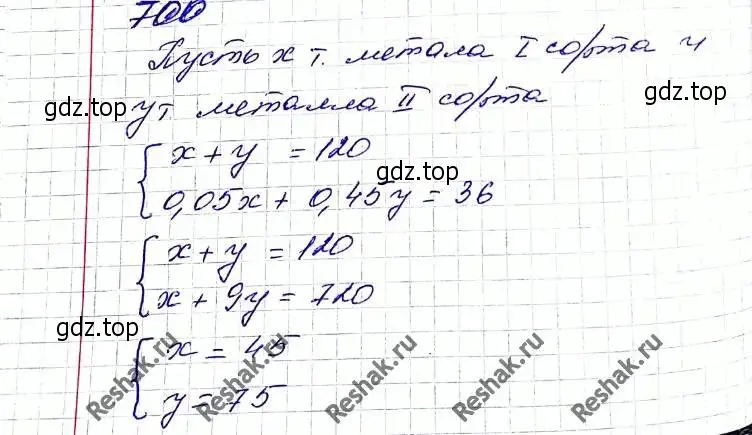 700
Пусть x т. метала I сорта и
gdz.top
y т металла II сорта
gdz.top
x + y = 120
gdz.top
0,05x + 0,45y = 36
x + y = 120
x + 9y = 720
gdz.top
x = 45
y = 75
Reshak.ru
Reshak.ru
Reshak.ru
Reshak.ru
Reshak.ru